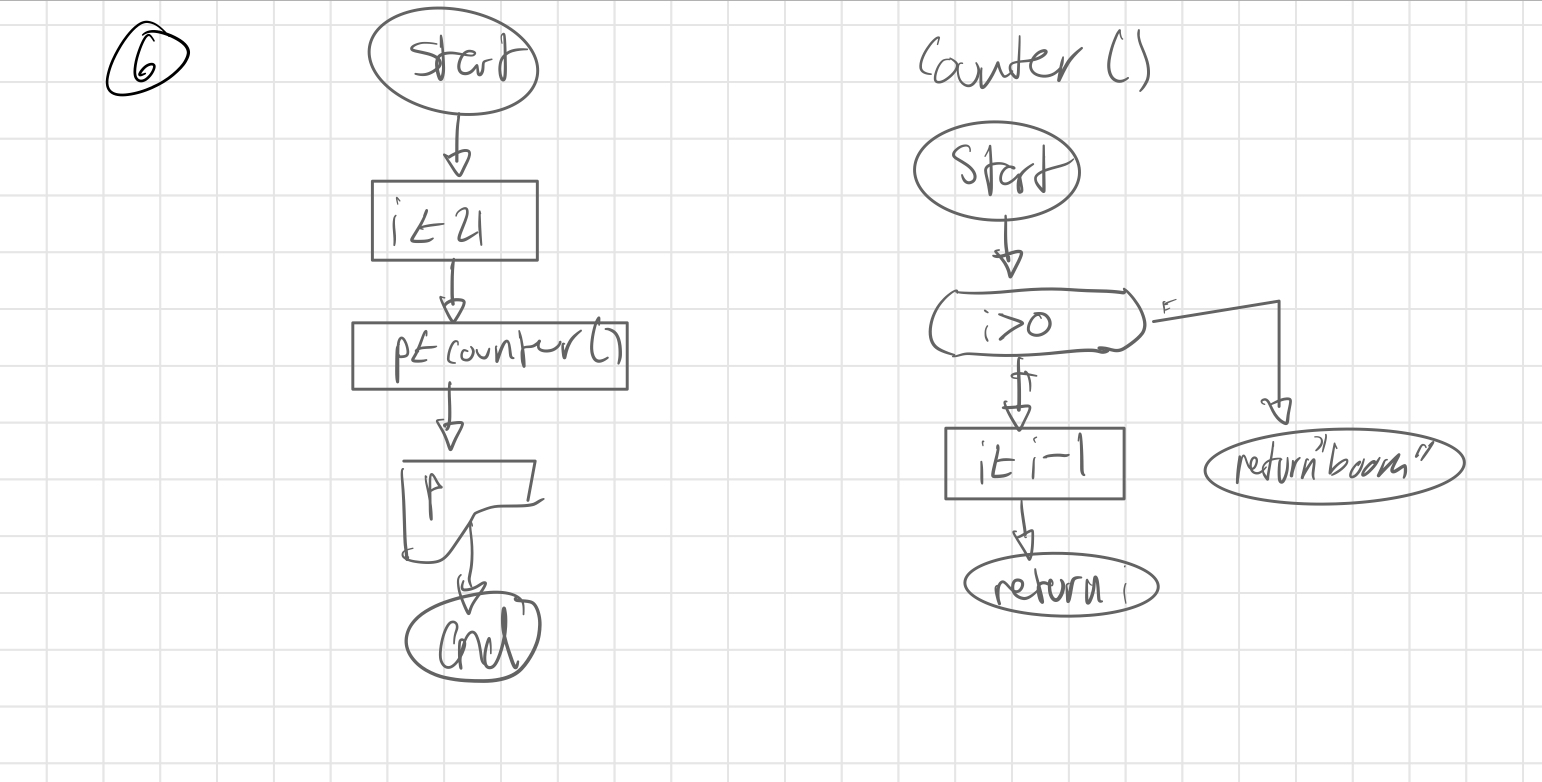 6
Start
i ← 21
p ← counter()
p
End
Counter ()
Start
i>0
F
T
i ← i-1
return "boom"
return i